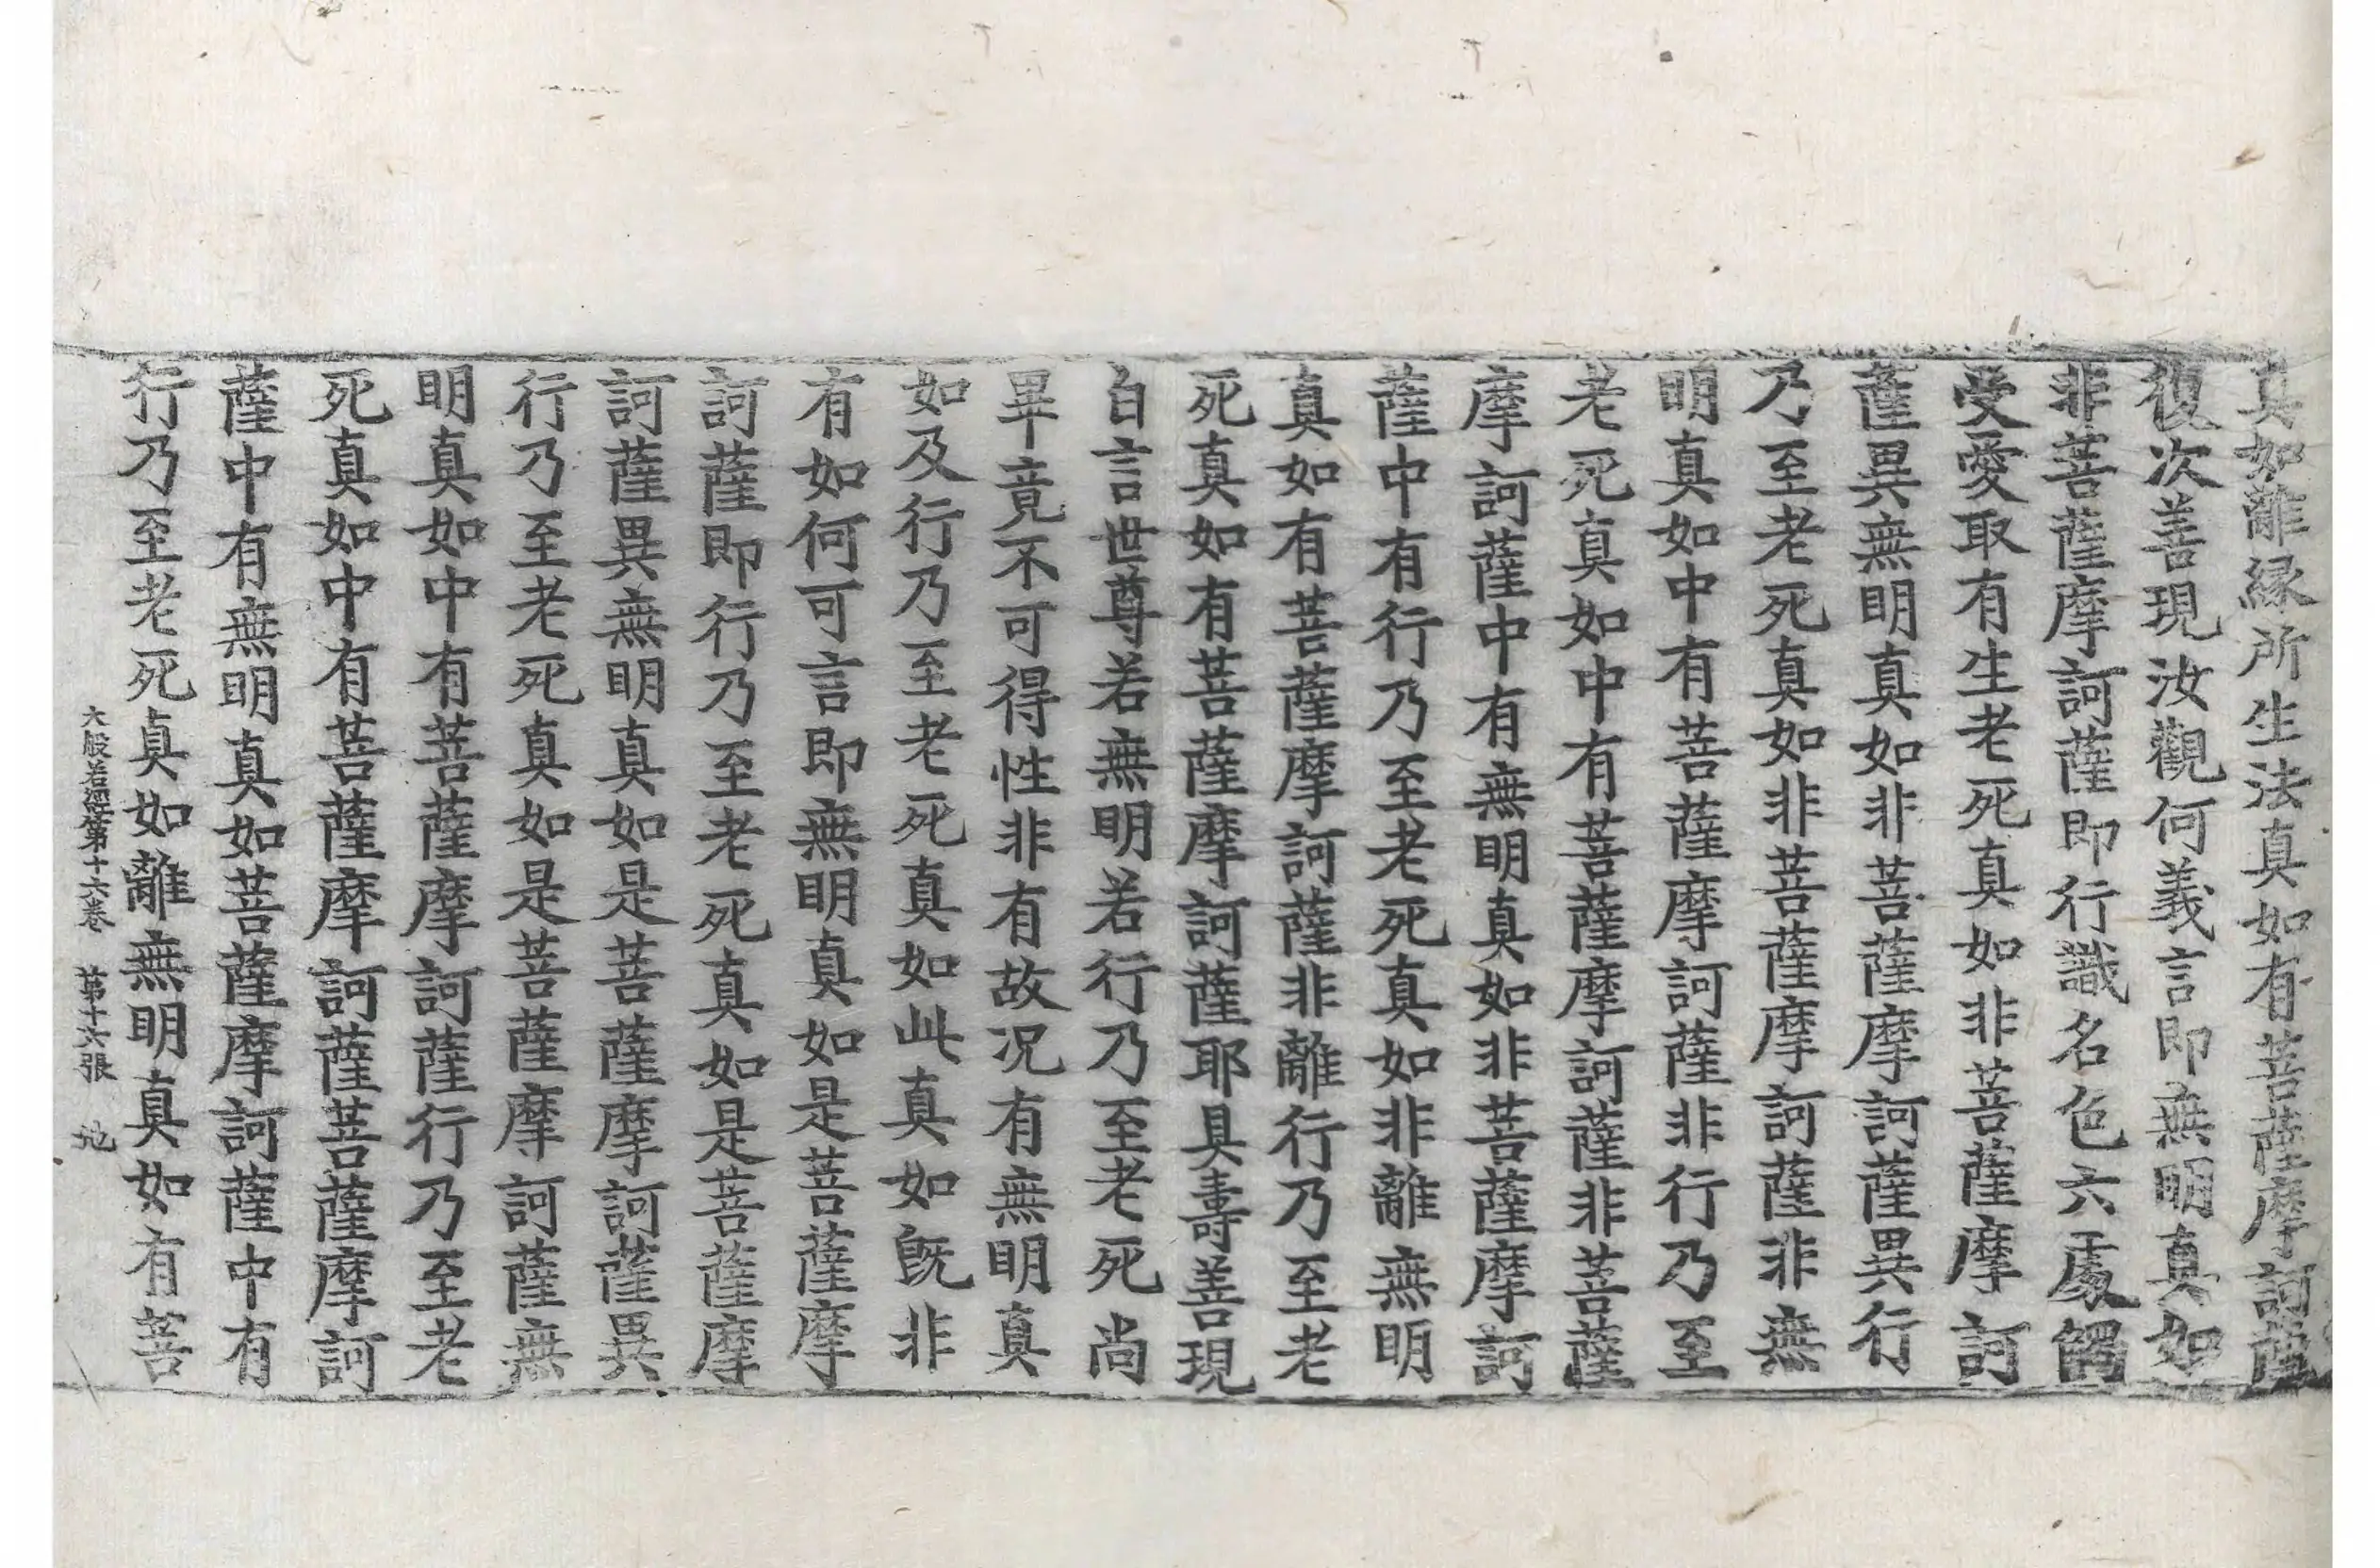 真如離緣所生法真如有菩薩摩訶薩
復次善現汝觀何義言即無明真如
非菩薩摩訶薩即行識名色六處觸
受愛取有生老死真如非菩薩摩訶
薩異無明真如非菩薩摩訶薩異行
乃至老死真如非菩薩摩訶薩非無
明真如中有菩薩摩訶薩非行乃至
老死真如中有菩薩摩訶薩非菩薩
摩訶薩中有無明真如非菩薩摩訶
薩中有行乃至老死真如非離無明
真如有菩薩摩訶薩非離行乃至老
死真如有菩薩摩訶薩耶具壽善現
白言世尊若無明若行乃至老死尚
畢竟不可得性非有故况有無明真
如及行乃至老死真如此真如既非
有如何可言即無明真如是菩薩摩
訶薩即行乃至老死真如是菩薩摩
訶薩異無明真如是菩薩摩訶薩異
行乃至老死真如是菩薩摩訶薩無
明真如中有菩薩摩訶薩行乃至老
死真如中有菩薩摩訶薩菩薩摩訶
薩中有無明真如菩薩摩訶薩中有
行乃至老死真如離無明真如有菩
大般若經第十六卷 第十六張 地